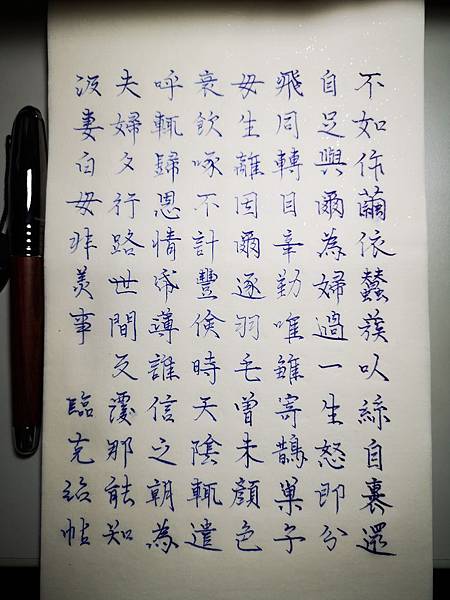 不如作繭依蠶蔟以絲自裹還
自足與爾為婦過一生怒即分
飛同轉目辛勤唯雖寄鵲巢子
母生離因爾逐羽毛曾未顏色
衰飲啄不計豐儉時天陰輒遣
呼輒歸恩情薄誰信之朝為
夫婦夕行路世間反覆那能知
妻白母非美事 臨帖